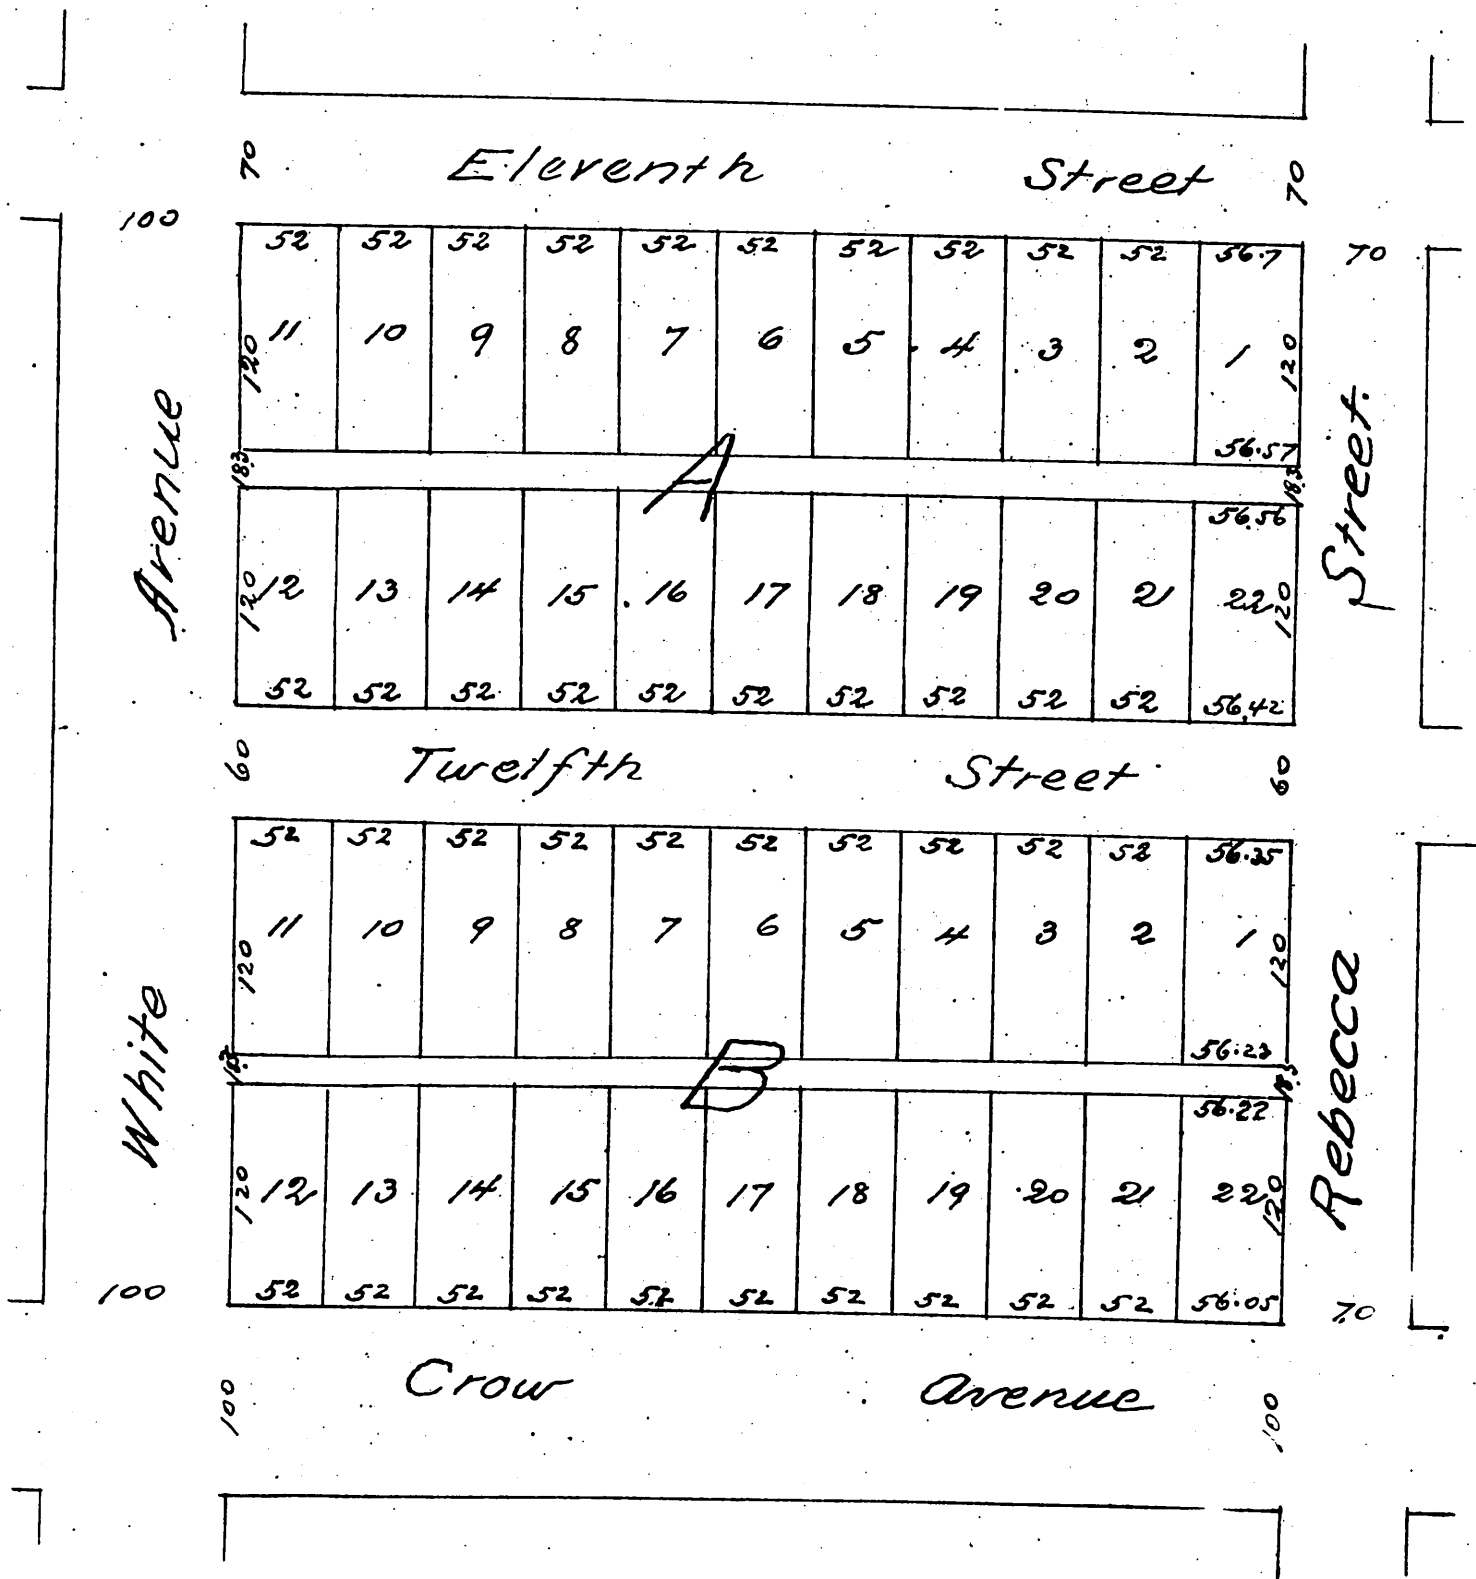 70 Eleventh Street 70
100 70
52 52 52 52 52 52 52 52 52 52 56.7
120 11 10 9 8 7 6 5 4 3 2 1 120
56.57
18.3 A 18.3
56.56
120 12 13 14 15 16 17 18 19 20 21 22 120
52 52 52 52 52 52 52 52 52 52 56.42
60 Twelfth Street 60
52 52 52 52 52 52 52 52 52 52 56.35
120 11 10 9 8 7 6 5 4 3 2 1 120
56.23
B
56.22
120 12 13 14 15 16 17 18 19 20 21 22 120
52 52 52 52 52 52 52 52 52 52 56.05
100 70
100 Crow Avenue 100
White Avenue
Rebecca Street.